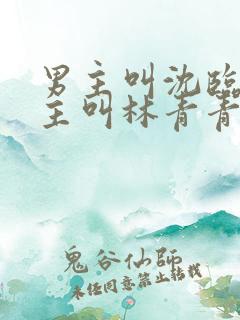 男主叫沈臨
主叫林青青
鬼谷仙師
未经同意禁止转载